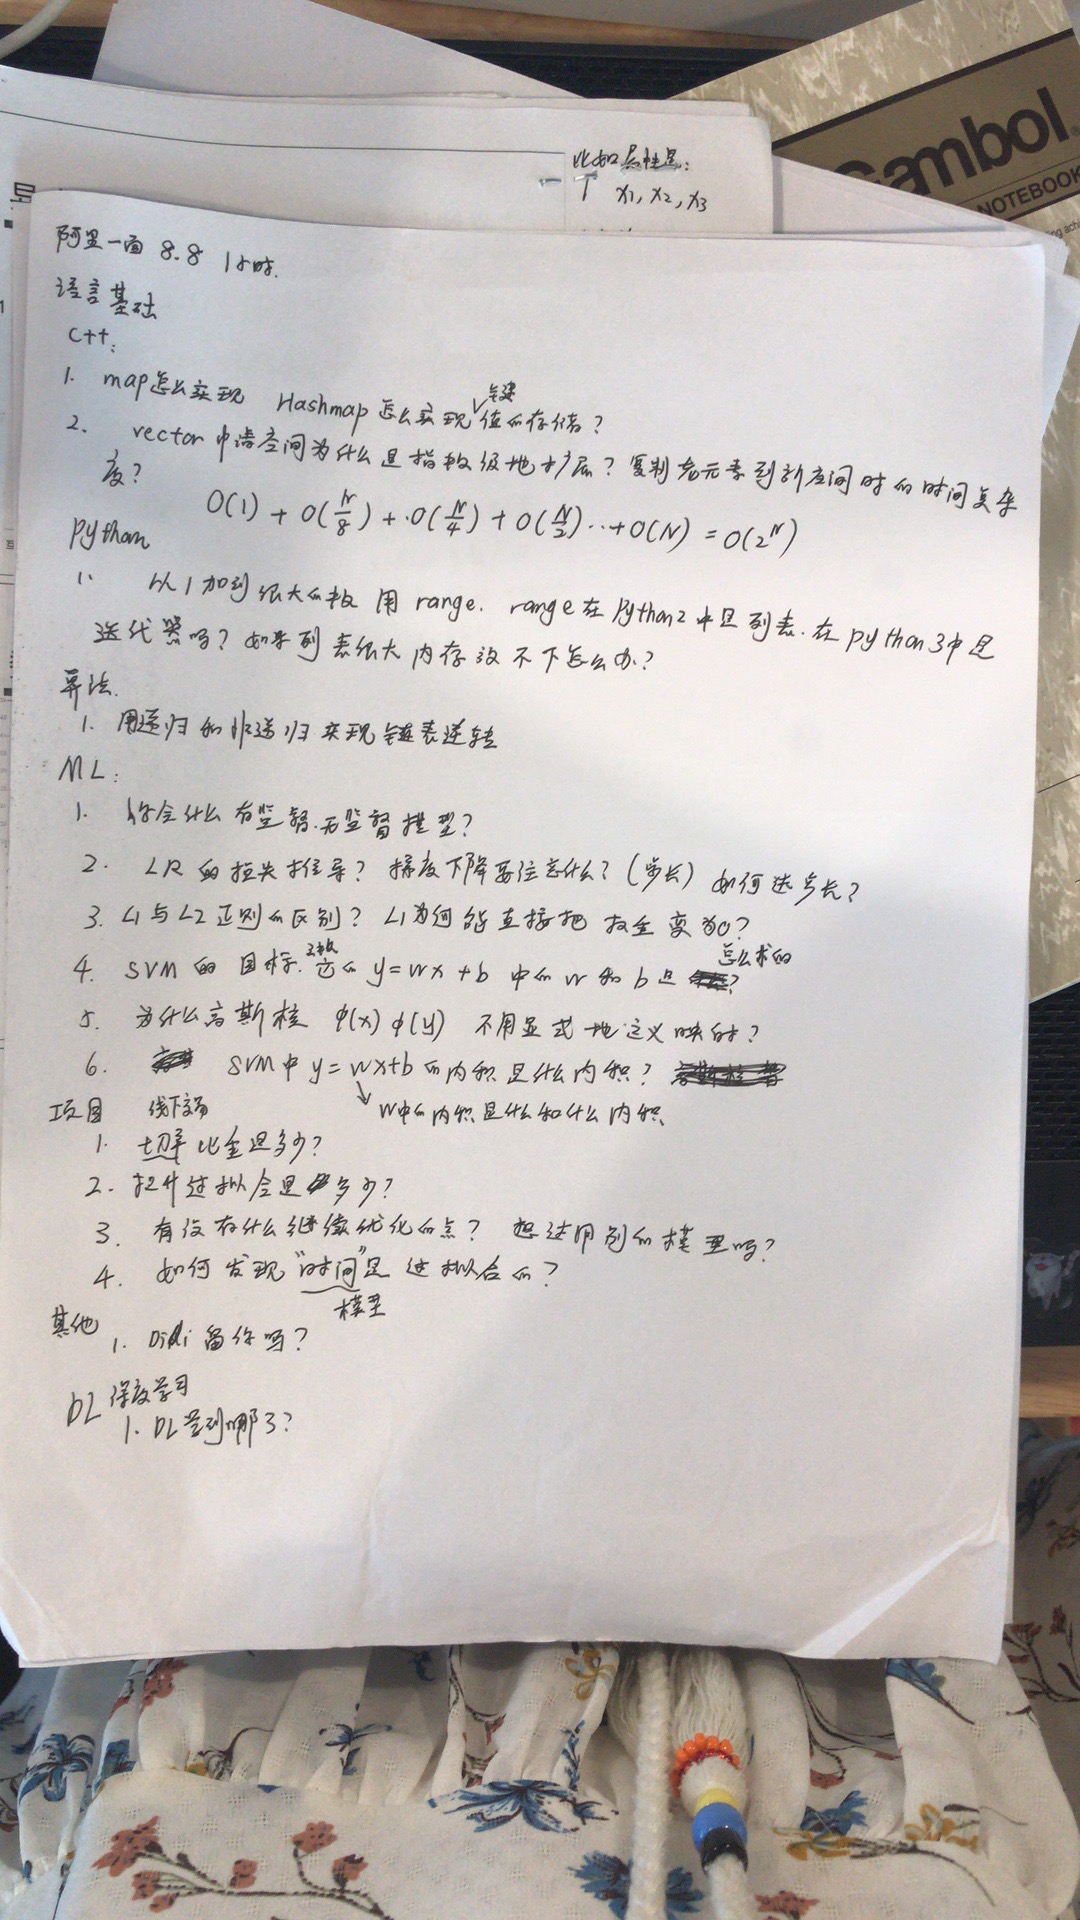 比如属性是:
x1, x2, x3
Gambol
NOTEBOOK
阿里一面 8.8 1小时.
语言基础
C++:
1. map怎么实现 Hashmap怎么实现键值的存储?
2. vector申请空间为什么是指数级地扩展? 复制老元素到新空间时的时间复杂
度?
O(1) + O(N/8) + O(N/4) + O(N/2) ... + O(N) = O(2^N)
Python
1. 从1加到很大的数 用 range. range在Python2中是列表.在python3中是
迭代器吗? 如果列表很大内存放不下怎么办?
算法.
1. 用递归和非递归实现链表逆转
ML:
1. 你会什么有监督.无监督模型?
2. LR的损失推导? 梯度下降要注意什么? (步长) 如何选步长?
3. L1与L2正则的区别? L1为何能直接把权重变为0?
4. SVM的目标函数.它的 y=wx+b 中的w和b是怎么求的?
5. 为什么高斯核 φ(x) φ(y) 不用显式地定义映射?
6. SVM中 y=wx+b的内积是什么内积?
w中的内积是什么和什么内积
项目 线下实习
1. 切单比率是多少?
2. 提升过拟合是多少?
3. 有没有什么继续优化的点? 想过用别的模型吗?
4. 如何发现"时间"是过拟合的?
模型
其他
1. Didi留你吗?
DL 深度学习
1. DL学到哪了?